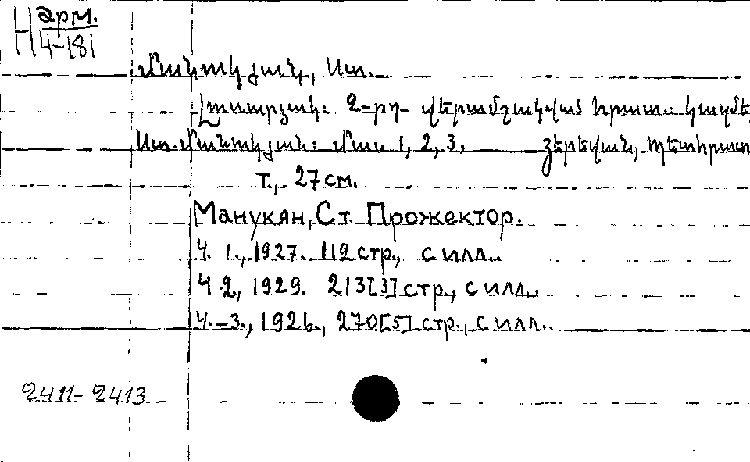 Н арм.
4-181
Մանուկյան, Ստ.
Լուսարձակ: 2-րդ վերամշակված հրատ. կազմե
Ստ. Մանուկյան: Մաս 1, 2, 3. Յերեվան, պետհրատ
т., 27 см.
Манукян, Ст. Прожектор.
Ч. 1., 1927. 112 стр., с илл.
Ч. 2, 1929. 213[3] стр., с илл.
Ч.-3., 1926., 270[5] стр., с илл.
2411-2413